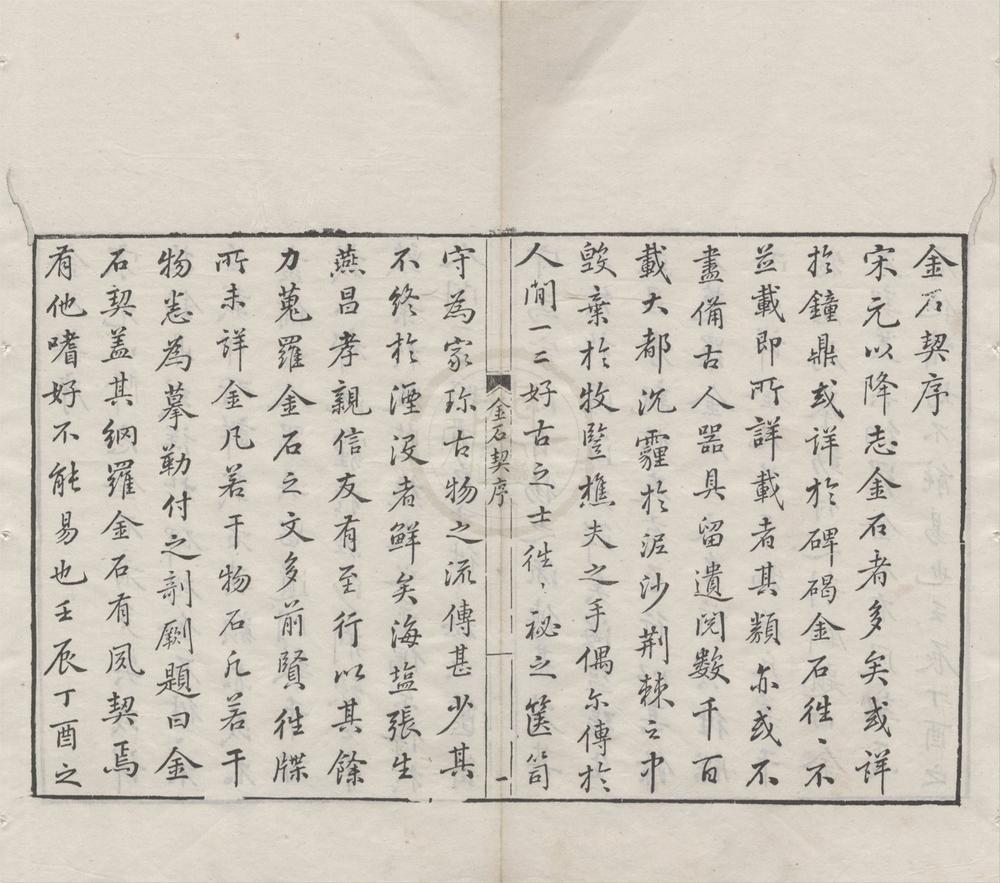 金石契序
宋元以降志金石者多矣或詳
於鐘鼎或詳於碑碣金石徃〻不
並載即所詳載者其類亦或不
盡備古人器具留遺閱數千百
載大都沉霾於泥沙荆棘之中
毀棄於牧豎樵夫之手偶尓傳於
人間一二好古之士徃〻祕之篋笥
金石契序
一
守為家珎古物之流傳甚少其
不終於湮没者鮮矣海塩張生
燕昌孝親信友有至行以其餘
力蒐羅金石之文多前賢徃牒
所未詳金凡若干物石凡若干
物悉為摹勒付之剞劂題曰金
石契盖其網羅金石有夙契焉
有他嗜好不能易也壬辰丁酉之